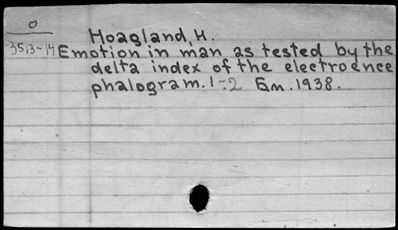 0
3513-14
Hoagland, H.
Emotion in man as tested by the
delta index of the electroence
phalogram. 1-2 6m. 1938.